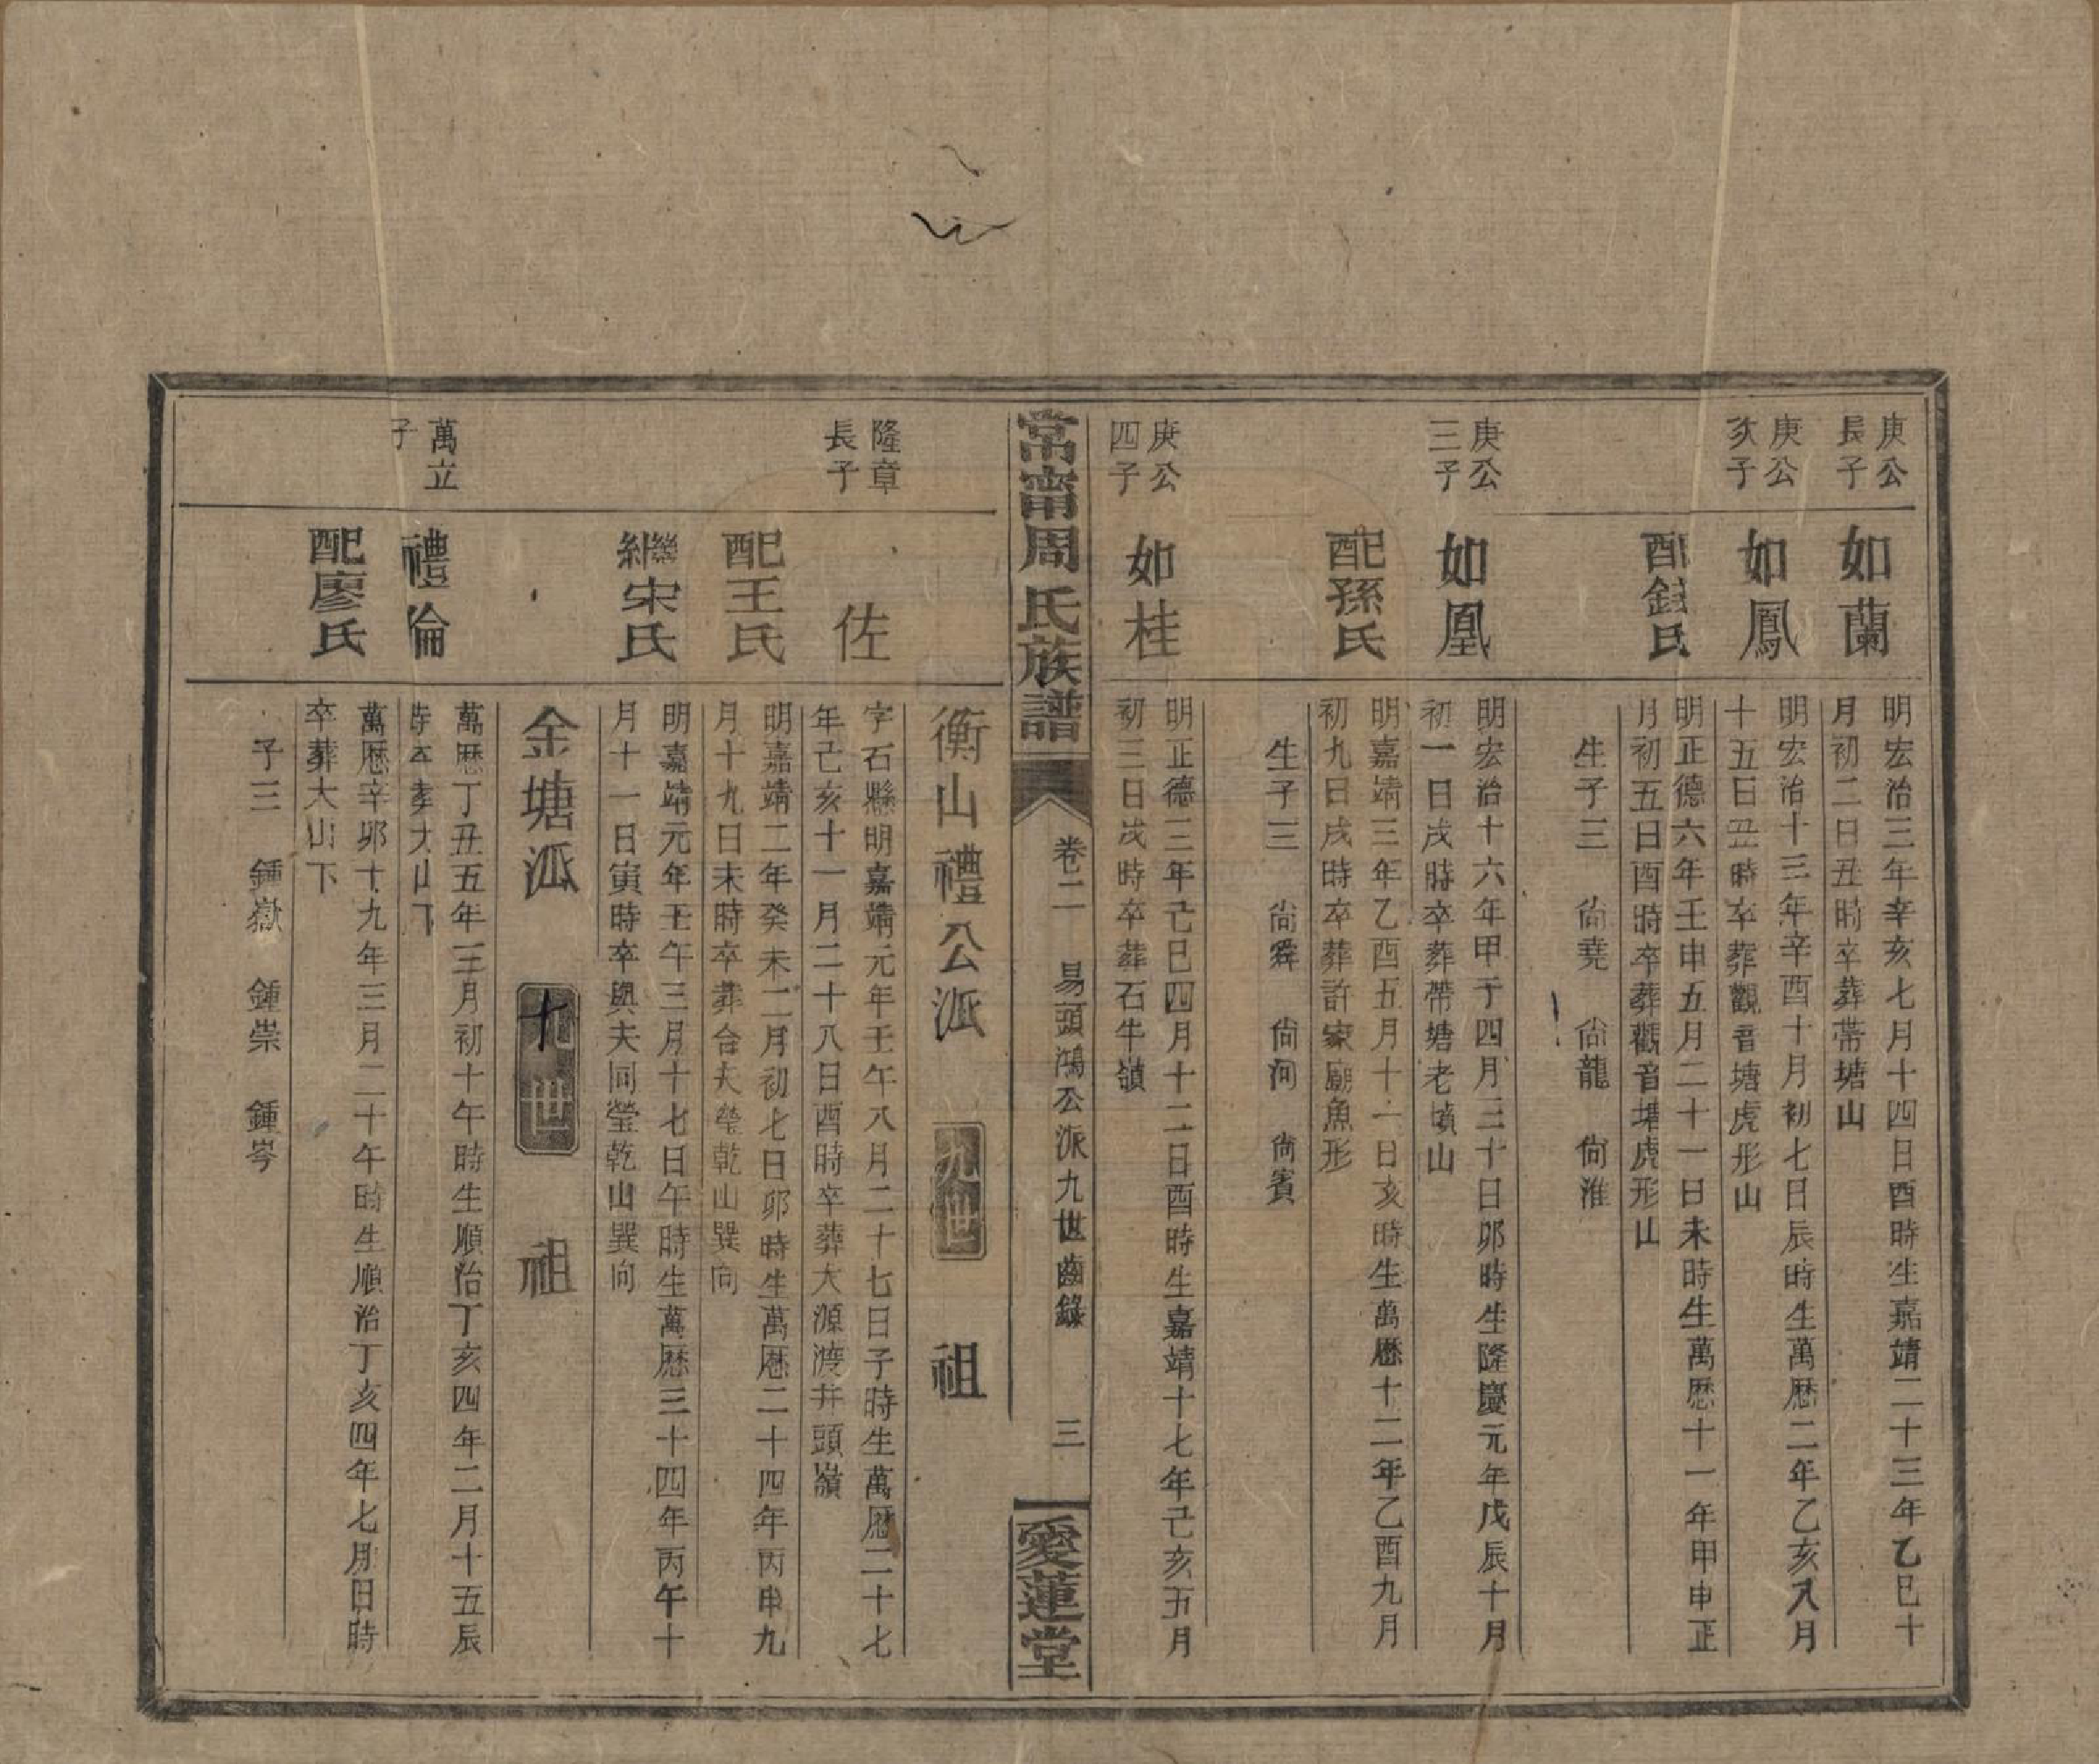 庚公
長子
如蘭
明宏治三年辛亥七月十四日酉時生嘉靖二十三年乙巳十
月初二日丑時卒葬帶塘山
庚公
次子
如鳳
明宏治十三年辛酉十月初七日辰時生萬曆二年乙亥八月
十五日丑時卒葬觀音塘虎形山
配錢氏
明正德六年壬申五月二十一日未時生萬曆十一年甲申正
月初五日酉時卒葬觀音塘虎形山
生子三 尙堯 尙龍 尙淮
庚公
三子
如凰
明宏治十六年甲子四月三十日卯時生隆慶元年戊辰十月
初一日戌時卒葬帶塘老墳山
配孫氏
明嘉靖三年乙酉五月十一日亥時生萬曆十二年乙酉九月
初九日戌時卒葬許家廟魚形
生子三 尙舜 尙河 尙賓
庚公
四子
如桂
明正德三年己巳四月十二日酉時生嘉靖十七年己亥五月
初三日戌時卒葬石牛嶺
常甯周氏族譜
卷二 易頭鴻公派九世齒錄 三
愛蓮堂
衡山禮公派 九世 祖
隆章
長子
佐
字石縣明嘉靖元年壬午八月二十七日子時生萬曆二十七
年己亥十一月二十八日酉時卒葬大源渡井頭嶺
配王氏
明嘉靖二年癸未二月初七日卯時生萬曆二十四年丙申九
月十九日未時卒葬合夫塋乾山巽向
繼配宋氏
明嘉靖元年壬午三月十七日午時生萬曆三十四年丙午十
月十一日寅時卒與夫同塋乾山巽向
金塘派 十世 祖
萬立
子
禮倫
萬曆丁丑五年三月初十午時生順治丁亥四年二月十五辰
時卒葬大山下
配廖氏
萬曆辛卯十九年三月二十午時生順治丁亥四年七月日時
卒葬大山下
子三 鍾嶽 鍾崇 鍾岑